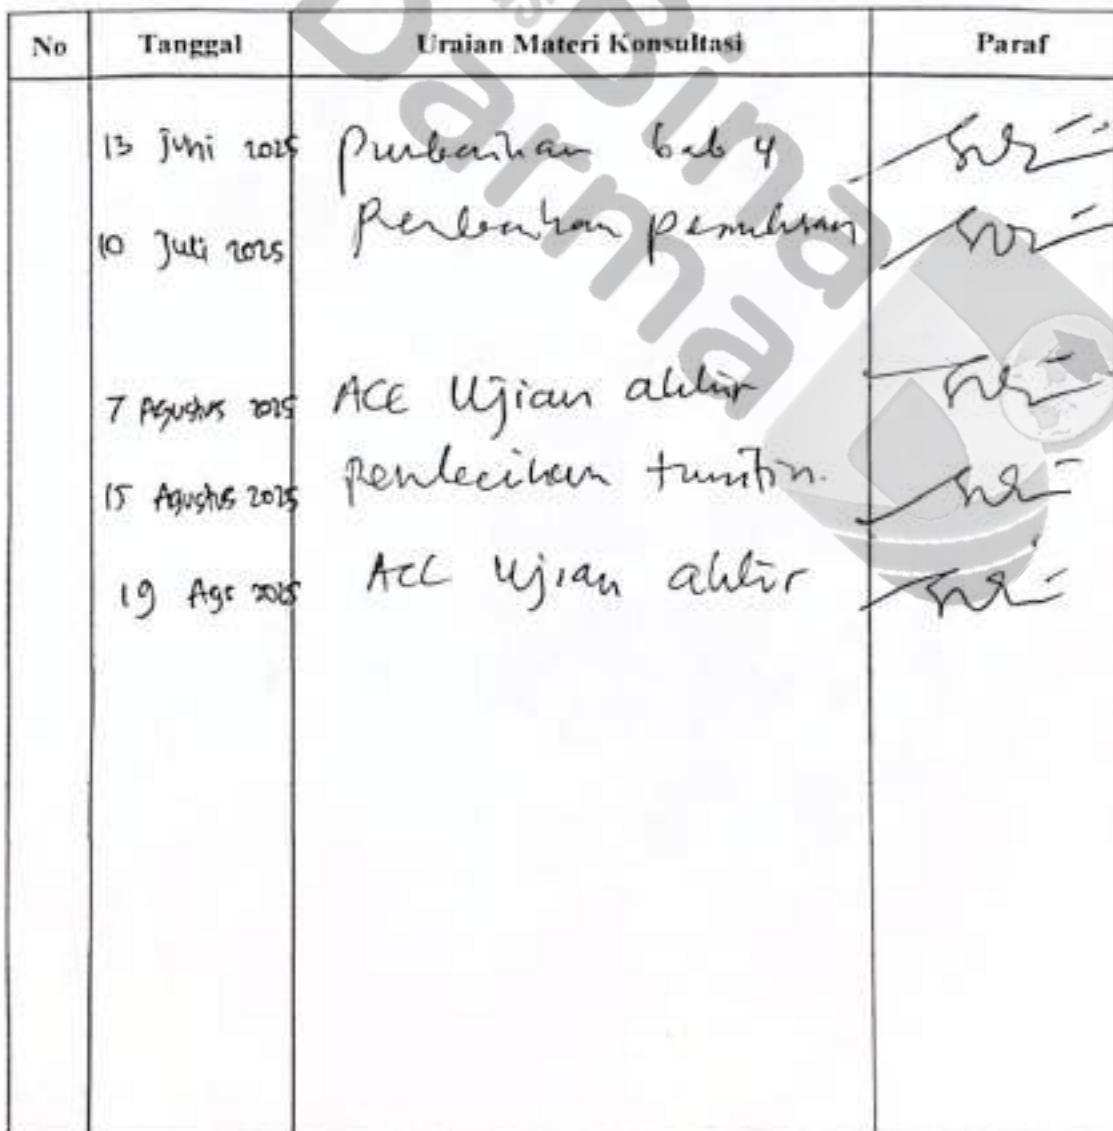 No Tanggal Uraian Materi Konsultasi Paraf
13 Juni 2025 Perbaikan bab 4
10 Juli 2025 Perbaikan penulisan
7 Agustus 2025 ACC Ujian akhir
15 Agustus 2025 Perbaikan turnitin.
19 Ags 2025 ACC Ujian akhir
Bina
Darma